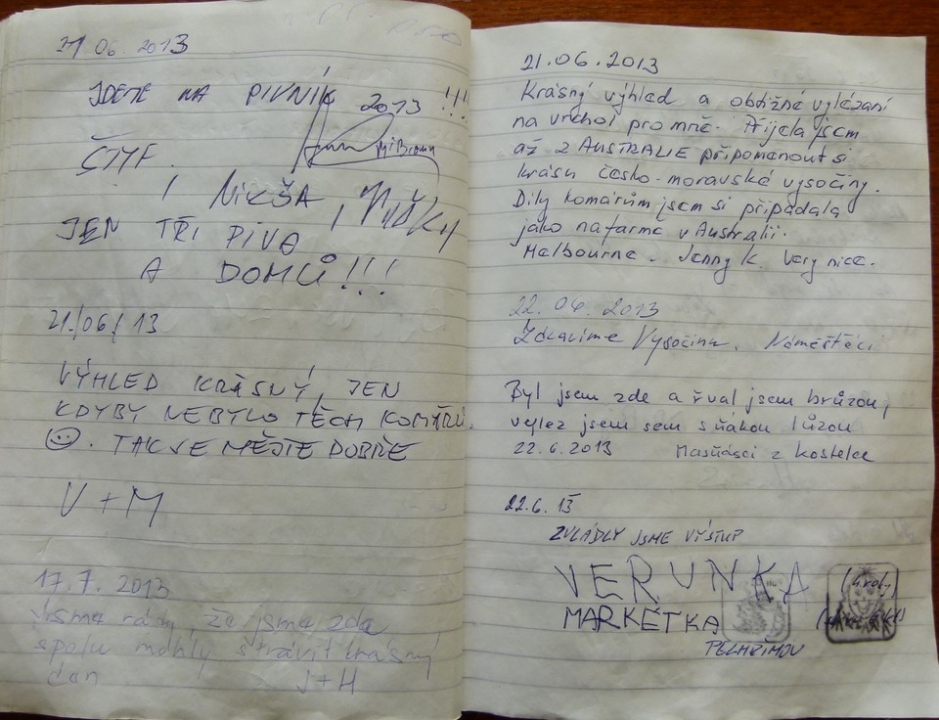 21.06.2013
JDEME NA PIVNÍK 2013 !!!
ČTYF.
MiBrown
, NIKŠA,
JEN TŘI PIVA
A DOMŮ!!!
21/06/13
VÝHLED KRÁSNÝ, JEN
KDYBY NEBYLO TĚCH KOMÁRŮ
☺. TAK SE MĚJTE DOBŘE
V+M
17.7.2013
Jsme rády, že jsme zde
spolu mohly strávit krásný
den J+H
21.06.2013
Krásný výhled a obtížné vylézaní
na vrchol pro mně. Přijela jsem
až z AUSTRALIE připomenout si
krásu česko-moravské vysočiny.
Díky komárům jsem si připadala
jako na farmě v Australii.
Melbourne. Jenny K. Very nice.
22.06.2013
Zdravíme Vysočinu. Náměšťáci
Byl jsem zde a řval jsem hrůzou,
vylez jsem sem s ňákou lůzou
22.6.2013 Masňásci z kostelce
22.6.13
ZVLÁDLY JSME VÝSTUP
VERUNKA
MARKÉTKA
PELHŘIMOV
(4 roky)